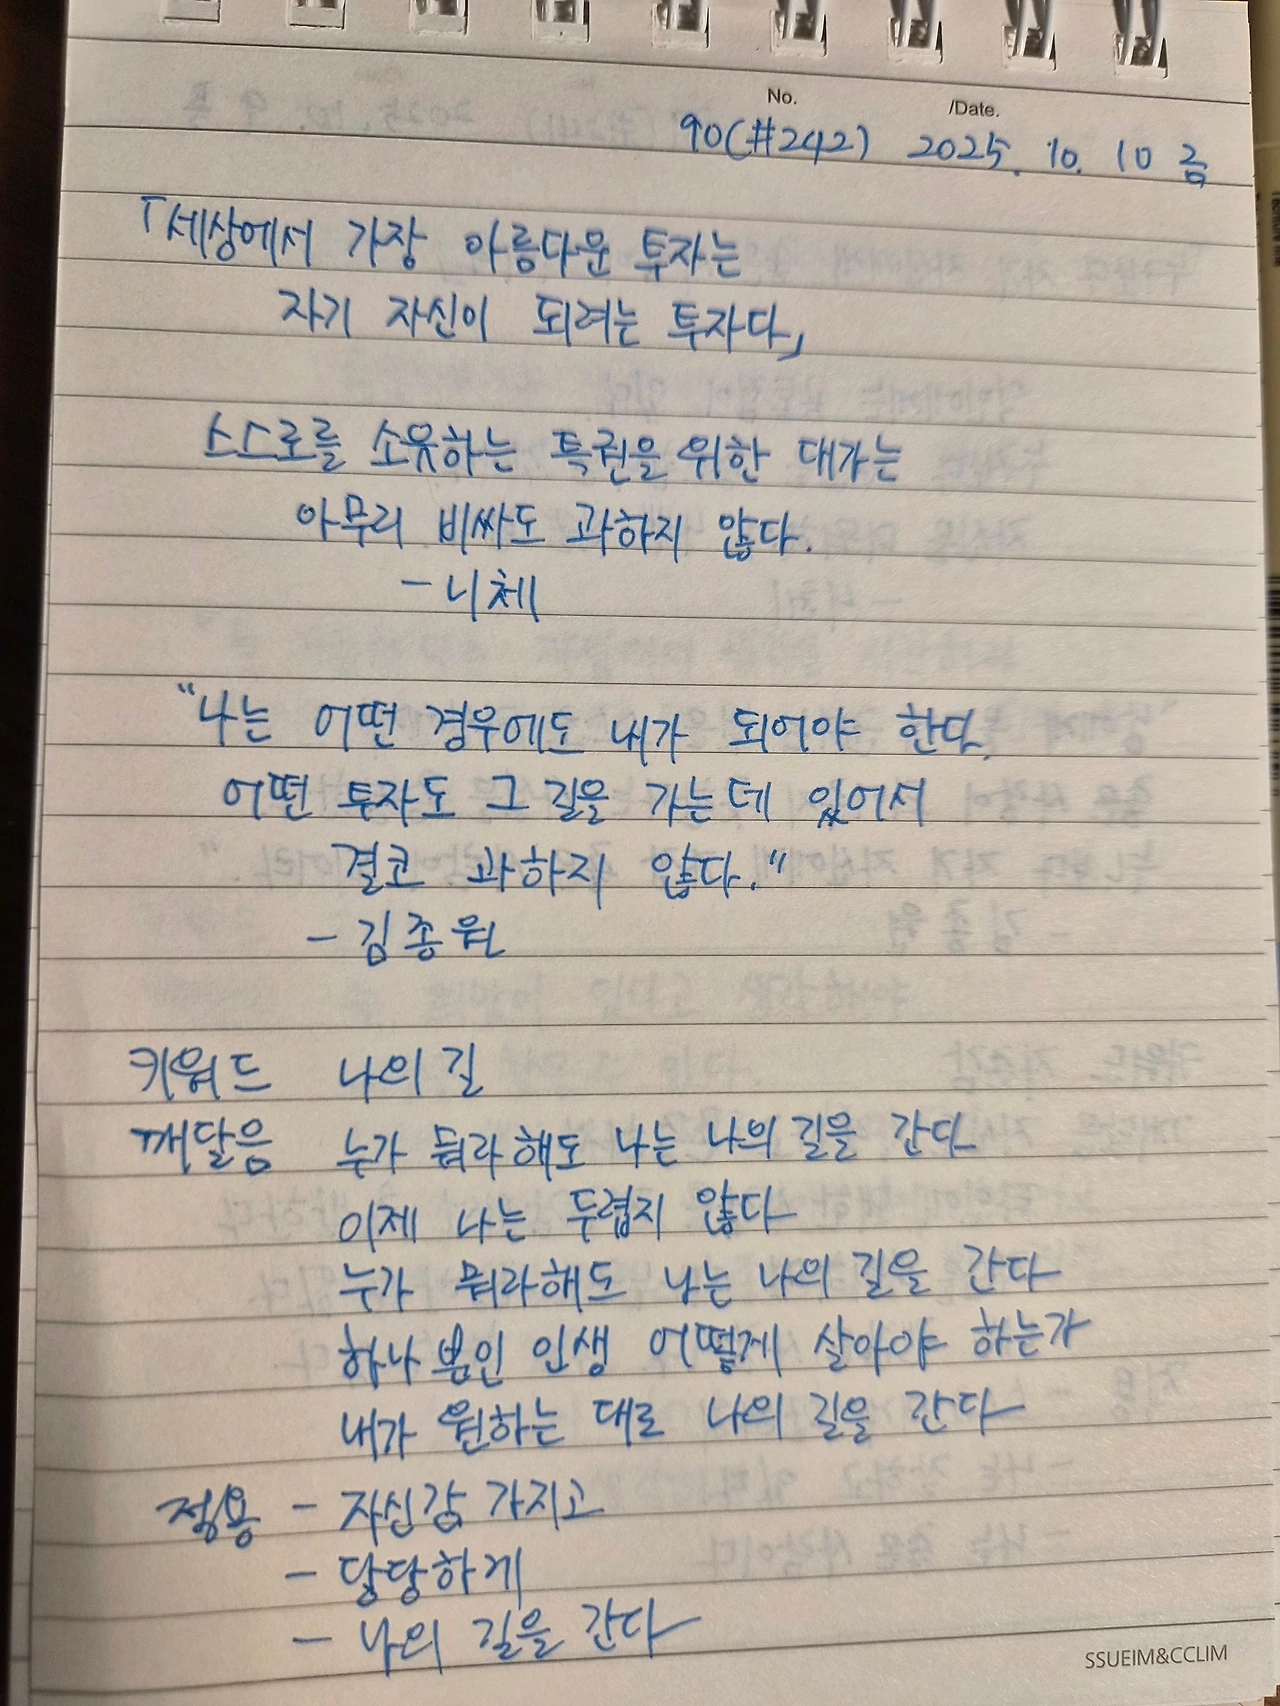 No. /Date.
90(#242) 2025. 10. 10 금
「세상에서 가장 아름다운 투자는
자기 자신이 되려는 투자다」
스스로를 소유하는 특권을 위한 대가는
아무리 비싸도 과하지 않다.
- 니체
"나는 어떤 경우에도 내가 되어야 한다.
어떤 투자도 그 길을 가는데 있어서
결코 과하지 않다."
- 김종원
키워드 나의 길
깨달음 누가 뭐라해도 나는 나의 길을 간다
이제 나는 두렵지 않다
누가 뭐라해도 나는 나의 길을 간다
하나뿐인 인생 어떻게 살아야 하는가
내가 원하는 대로 나의 길을 간다
적용 - 자신감 가지고
- 당당하게
- 나의 길을 간다
SSUEIM&CCLIM